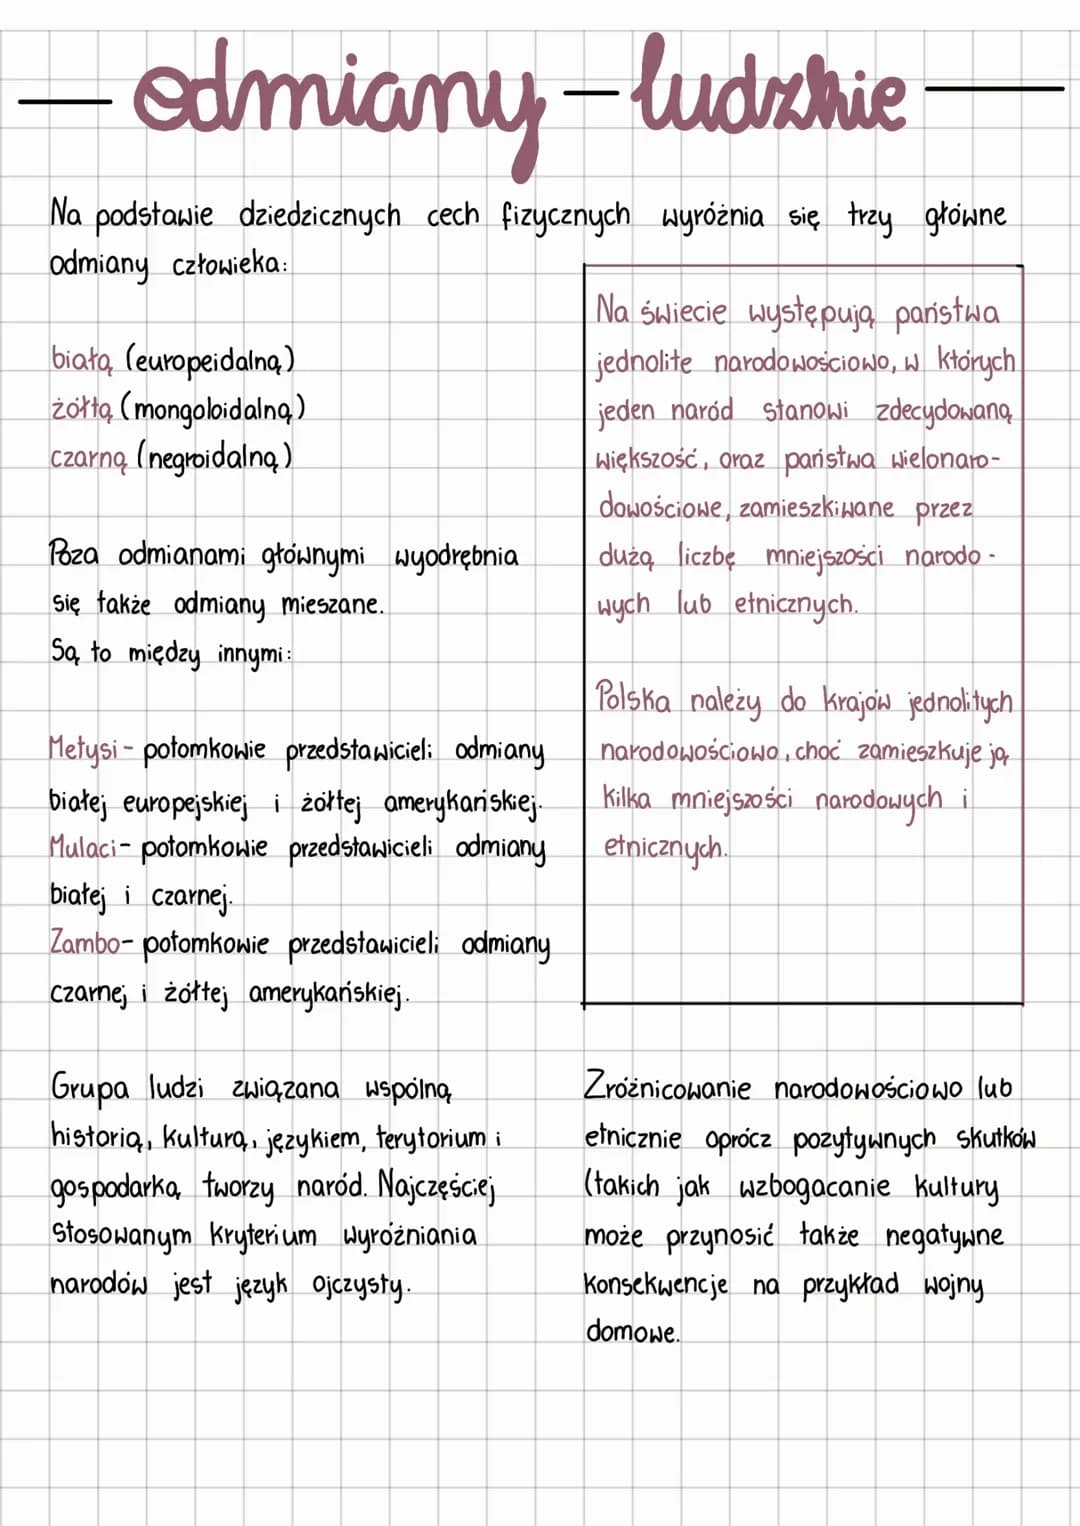 odmiany - ludzkie
Na podstawie dziedzicznych cech fizycznych wyróżnia się trzy główne
odmiany człowieka:
białą (europeidalną)
żółtą (mongoloidalną)
czarną (negroidalną)
Poza odmianami głównymi wyodrębnia
się także odmiany mieszane.
Są to między innymi:
Metysi - potomkowie przedstawicieli odmiany
białej europejskiej i żółtej amerykańskiej.
Mulaci - potomkowie przedstawicieli odmiany
białej i czarnej.
Zambo - potomkowie przedstawicieli odmiany
czarnej i żółtej amerykańskiej.
Na świecie występują państwa
jednolite narodowościowo, w których
jeden naród stanowi zdecydowaną
większość, oraz państwa wielonaro-
dowościowe, zamieszkiwane przez
dużą liczbę mniejszości narodo-
wych lub etnicznych.
Polska należy do krajów jednolitych
narodowościowo, choć zamieszkuje ją
kilka mniejszości narodowych i
etnicznych.
Grupa ludzi związana wspólną
historią, kulturą, językiem, terytorium i
gospodarką tworzy naród. Najczęściej
stosowanym kryterium wyróżniania
narodów jest język ojczysty.
Zróżnicowanie narodowościowo lub
etnicznie oprócz pozytywnych skutków
(takich jak wzbogacanie kultury
może przynosić także negatywne
konsekwencje na przykład wojny
domowe.